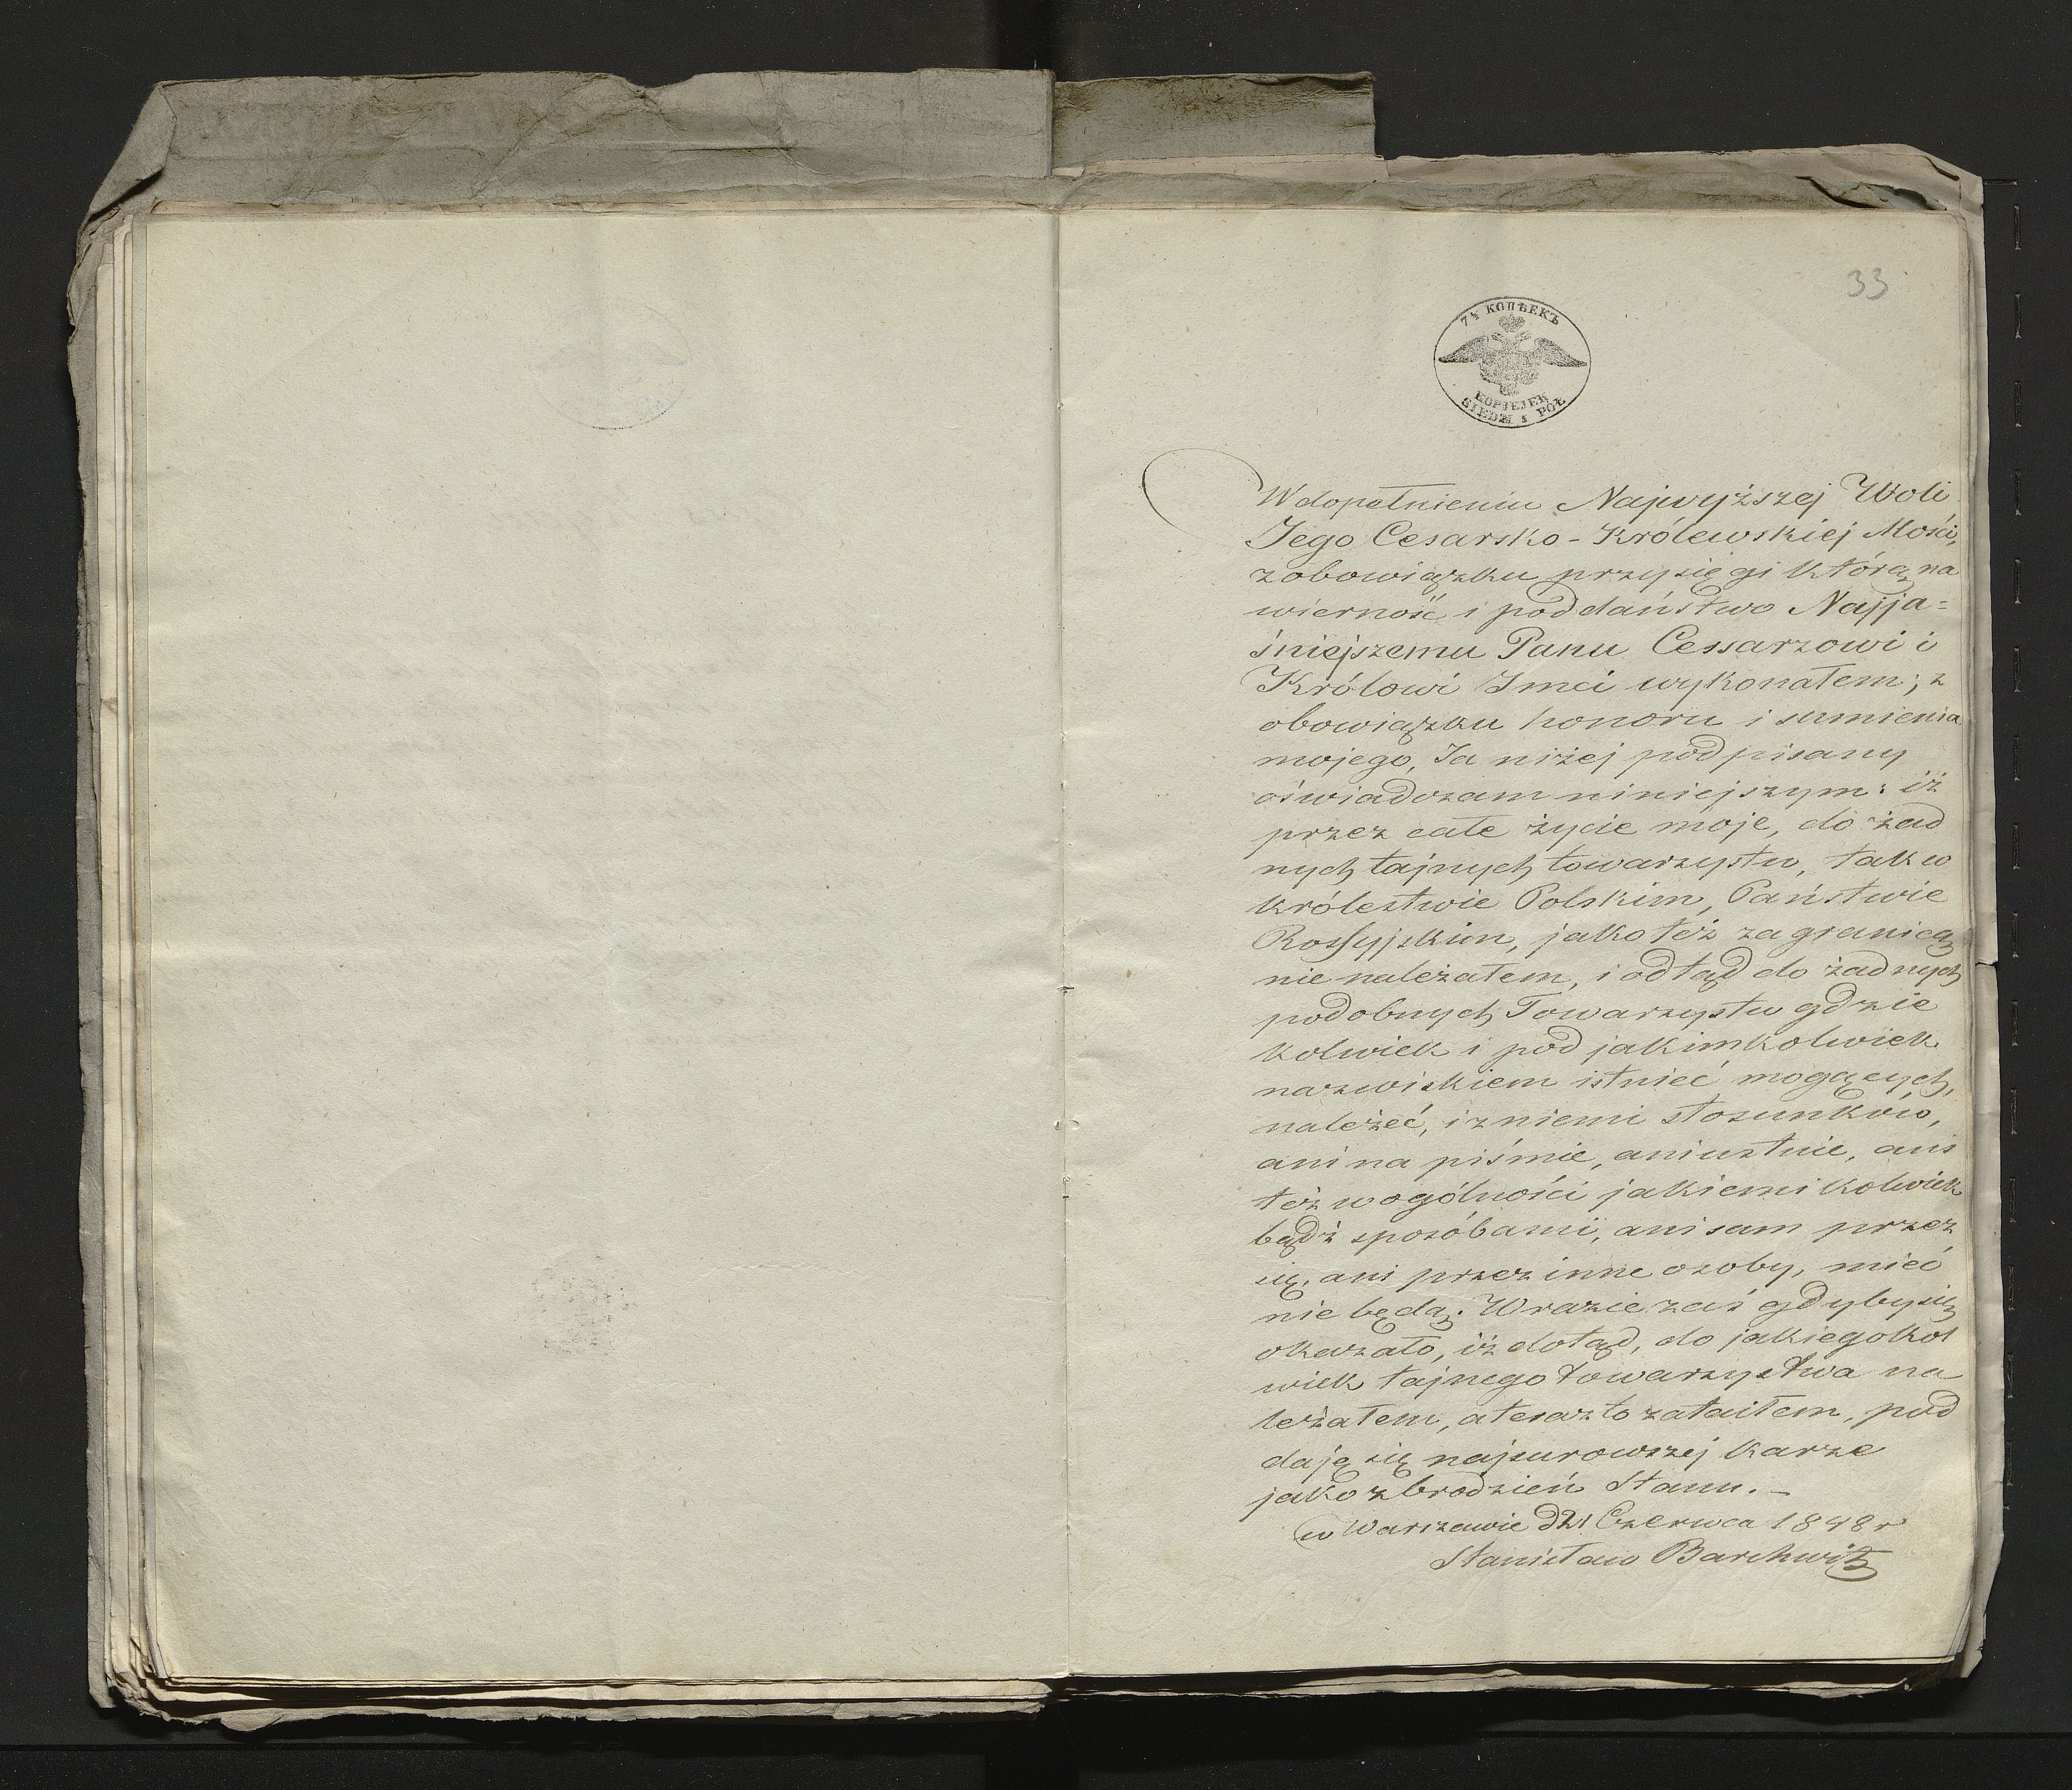 33
7½ КОПѢЕКЪ
KOPIEJEK
SIEDM I PÓŁ
W dopełnieniu Najwyższej Woli
Jego Cesarsko-Królewskiej Mości,
z obowiązku przysięgi którą na
wierność i poddaństwo Najja=
śniejszemu Panu Cessarzowi i
Królowi Jmci wykonałem; z
obowiązku honoru i sumienia
mojego, Ja niżej podpisany
oświadczam niniejszym: iż
przez całe życie moje, do żad
nych tajnych towarzystw, tak w
królestwie Polskim, Państwie
Rossyjskim, jako też za granicą
nie należałem, i odtąd do żadnych
podobnych Towarzystw gdzie
kolwiek i pod jakimkolwiek
nazwiskiem istnieć mogących,
należeć, i z niemi stosunków,
ani na piśmie, ani ustnie, ani
też w ogólności jakiemikolwiek
bądź sposóbami, ani sam przez
się, ani przez inne osoby, mieć
nie będę. W razie zaś gdyby się
okazało, iż dotąd, do jakiegokol
wiek tajnego towarzystwa na
leżałem, a teraz to zataiłem, pod
daję się najsurowszej karze
jako zbrodzień Stanu. –
w Warszawie d 21 Czerwca 1848 r
Stanisław Barchwitz